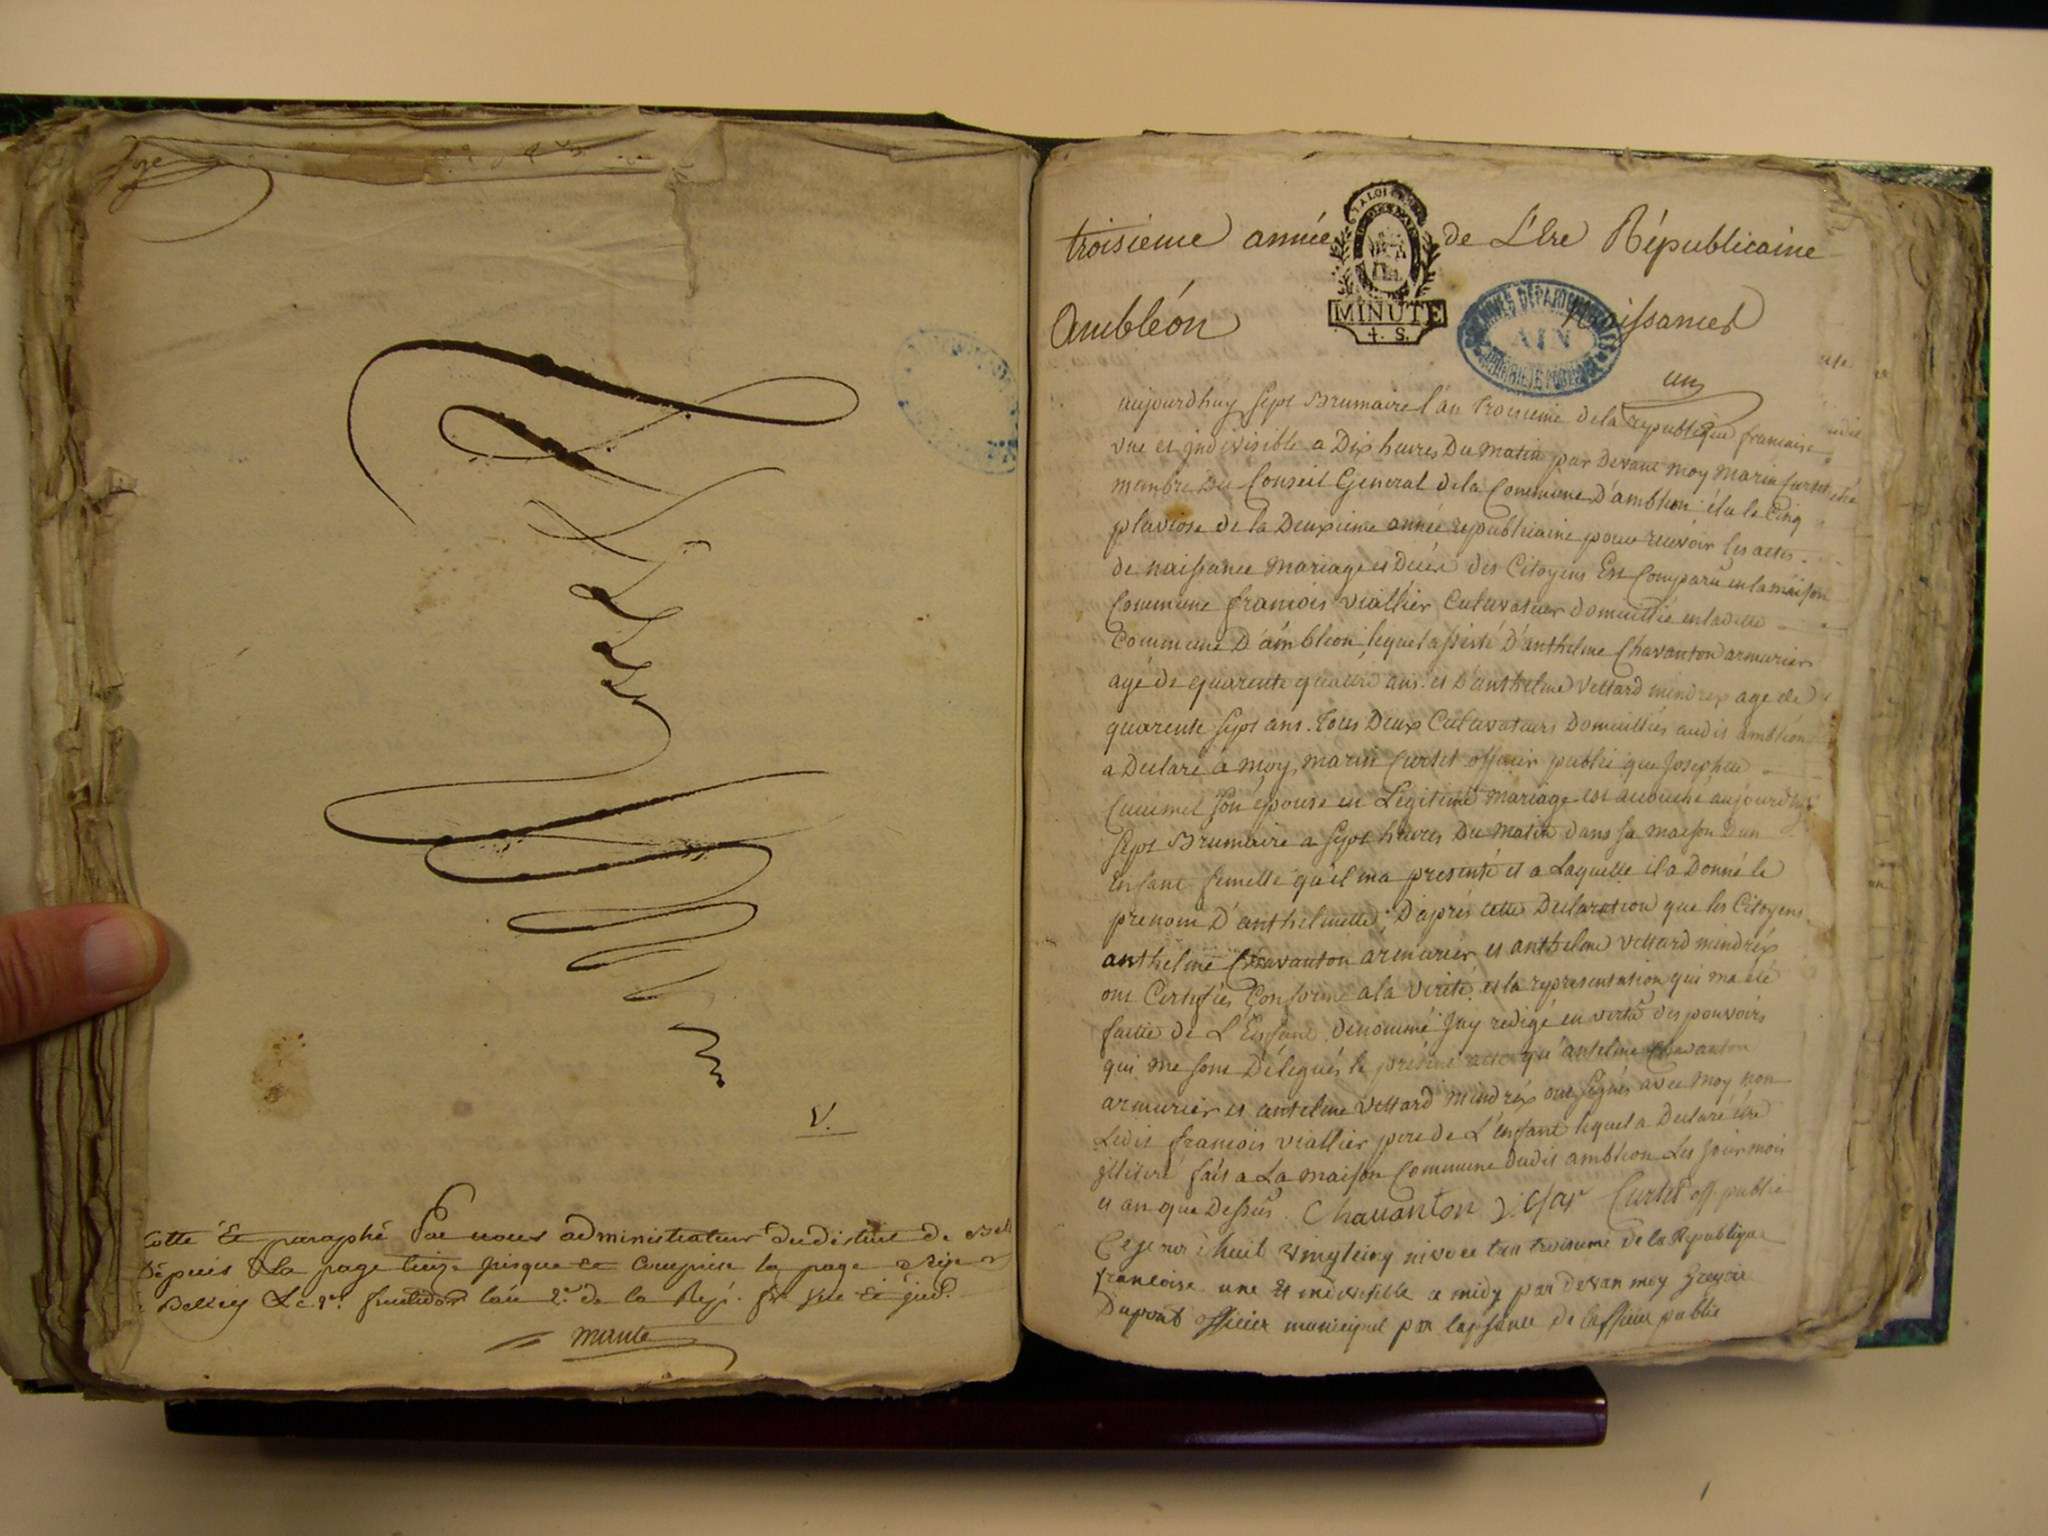 V.
Cotté et paraphé Par nous administrateur du district de Bel
Dépuis la page treize jusque et compris la page seize
Belley Le 9r. fructidor l'an 2e. de la Rep. fr. une et ind.
troisieme année de L'Ere Républicaine
MINUTE
4. S.
Ambléon
Naissances
ARCHIVES DÉPARTEMENTALES
AIN
un
aujourdhuy sept Brumaire l'an troisieme de la republique francaise
une et indivisible a Dix heures Du matin par devant moy marin Curtet
membre Du Conseil General de la Commune D'ambléon élu le Cinq
pluviose de la Deuxieme année republicaine pour recevoir les actes
de naissance mariage et Décès des Citoyens Est Comparu en la maison
Commune francois viallier Cultivateur domicillié en ladite
Commune D'ambléon lequel assisté D'anthelme Chavanton armurier
agé de quarente quatre ans et D'anthelme vettard mindrex agé de
quarente sept ans. tous Deux Cultivateurs Domicilliés audit ambléon
a Declaré a moy marin Curtet officier public que Josephte
son epouse en Légitime mariage est accouché aujourdhuy
sept Brumaire a sept heures Du matin dans sa maison d'un
Enfant femelle qu'il ma presenté et a Laquelle il a Donné le
prenom D'anthelmette; D'après cette Declaration que les Citoyens
anthelme Chavanton armurier et anthelme vettard mindrex
ont Certifiés Conforme a la verité et la representation qui ma été
faitte de L'Enfant denommé Jay redigé en vertu des pouvoirs
qui me sont Délegués le présent acte qu'antelme Chavanton
armurier et antelme vettard mindrex ont signés avec moy non
Ledit francois viallier pere de L'enfant lequel a Declaré être
illitéré fait a La maison Commune dudit ambléon Les Jour mois
et an que Dessus. Chavanton Curtet off. public
huit vingt cinq nivose l'an troisieme de la Republique
francoise une et indivisible a midy par devan moy
Duprat officier municipal par l'absance de lofficier public